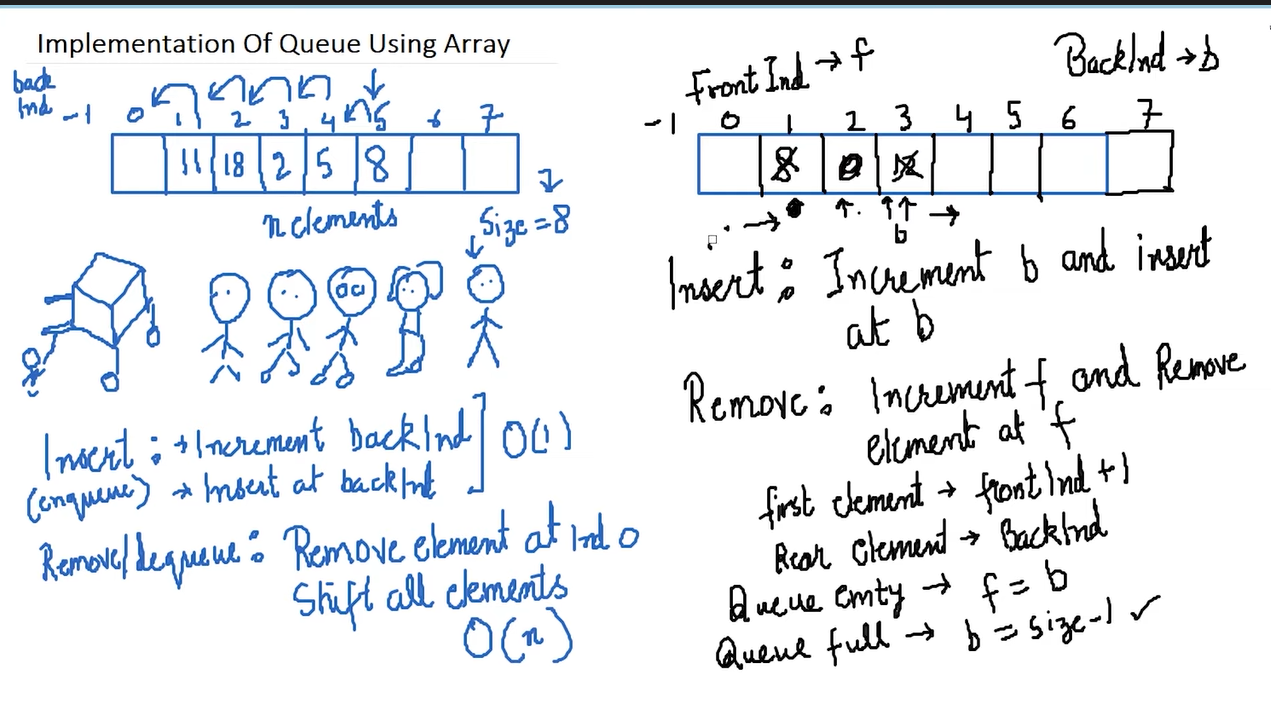 Implementation Of Queue Using Array
back
Ind
-1 0 1 2 3 4 5 6 7
11 18 2 5 8
n elements
Size = 8
Insert : → Increment backInd ] O(1)
(enqueue) → Insert at backInd
Remove/dequeue : Remove element at Ind 0
Shift all elements
O(n)
FrontInd → f
BackInd → b
-1 0 1 2 3 4 5 6 7
8
b
Insert : Increment b and insert
at b
Remove : Increment f and Remove
element at f
first element → frontInd + 1
Rear Element → BackInd
Queue Emty → f = b
Queue full → b = size-1 ✓